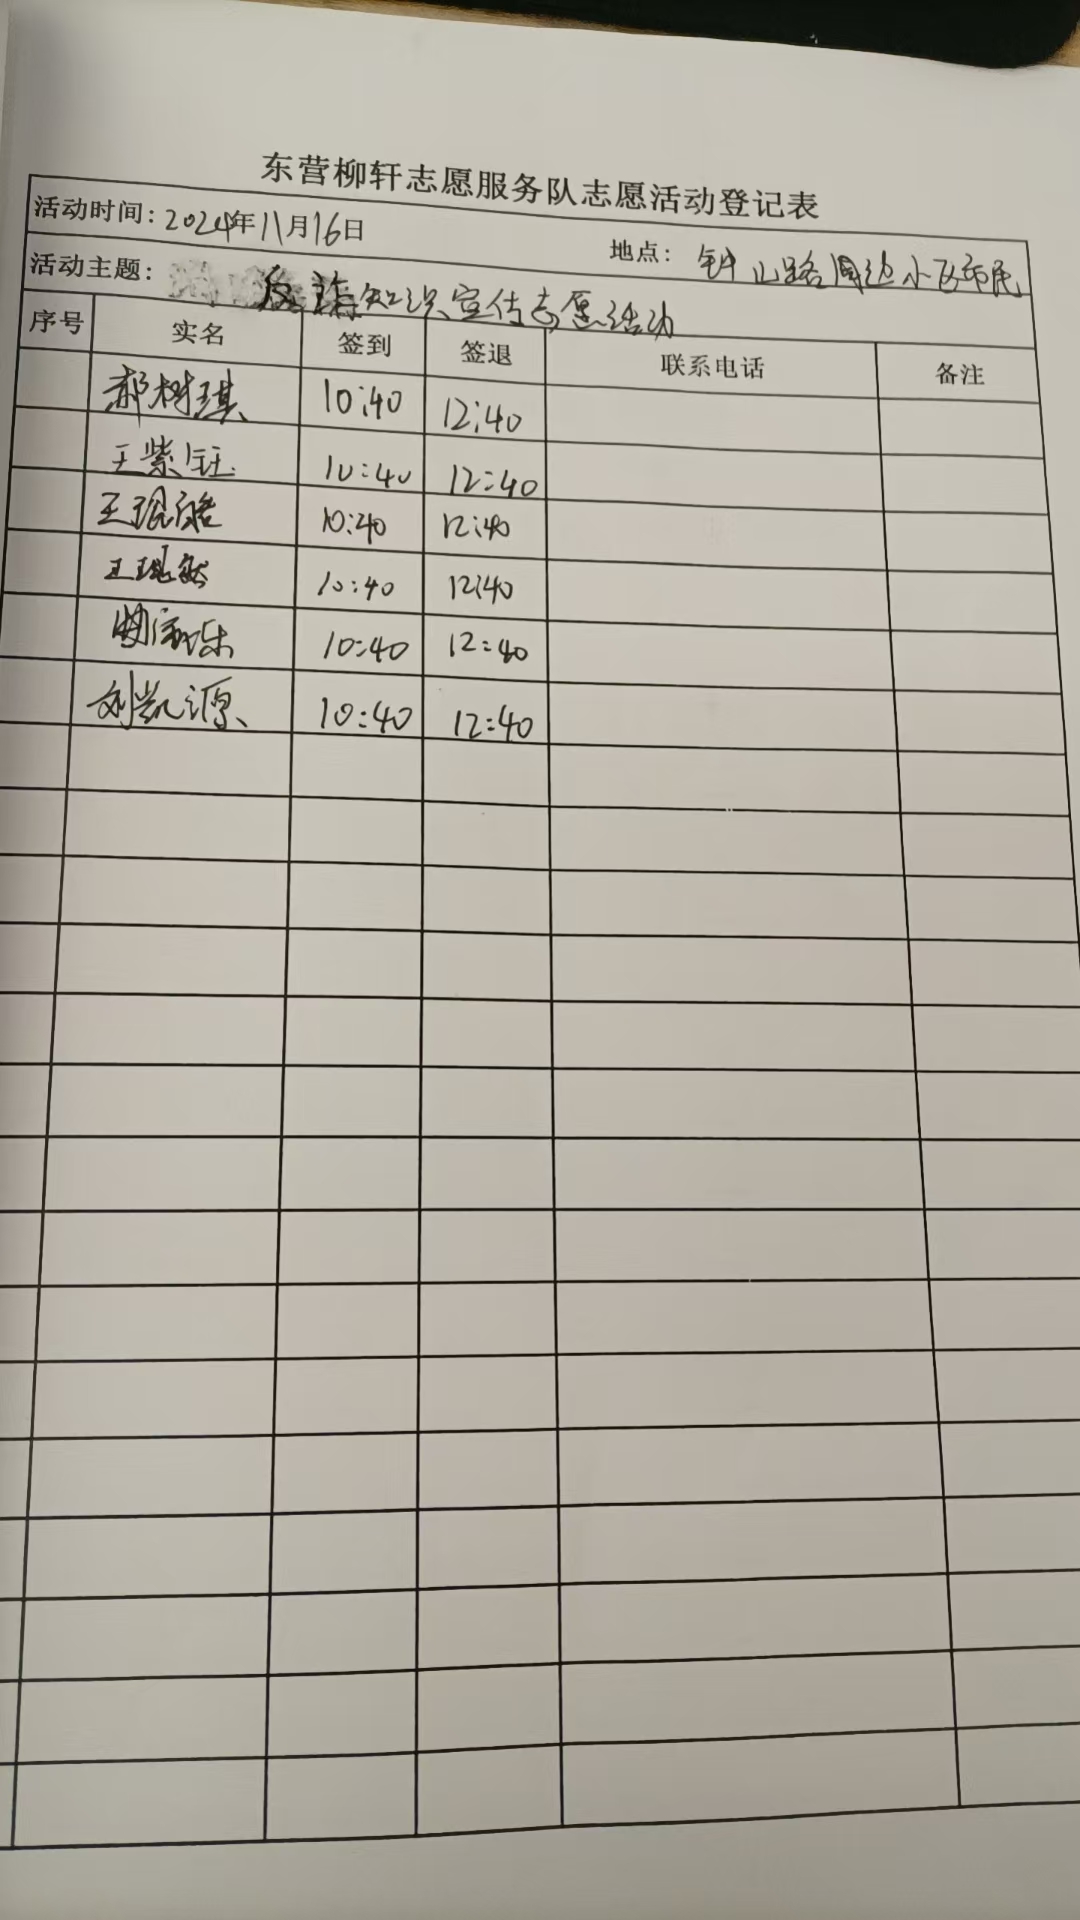 东营柳轩志愿服务队志愿活动登记表
活动时间：2024年11月16日 地点：钟山路周边小区市民
活动主题：反诈知识宣传志愿活动
序号 实名 签到 签退 联系电话 备注
郝树琪 10:40 12:40
王紫钰 10:40 12:40
王琨皓 10:40 12:40
王琨 10:40 12:40
曲 乐 10:40 12:40
刘凯源 10:40 12:40